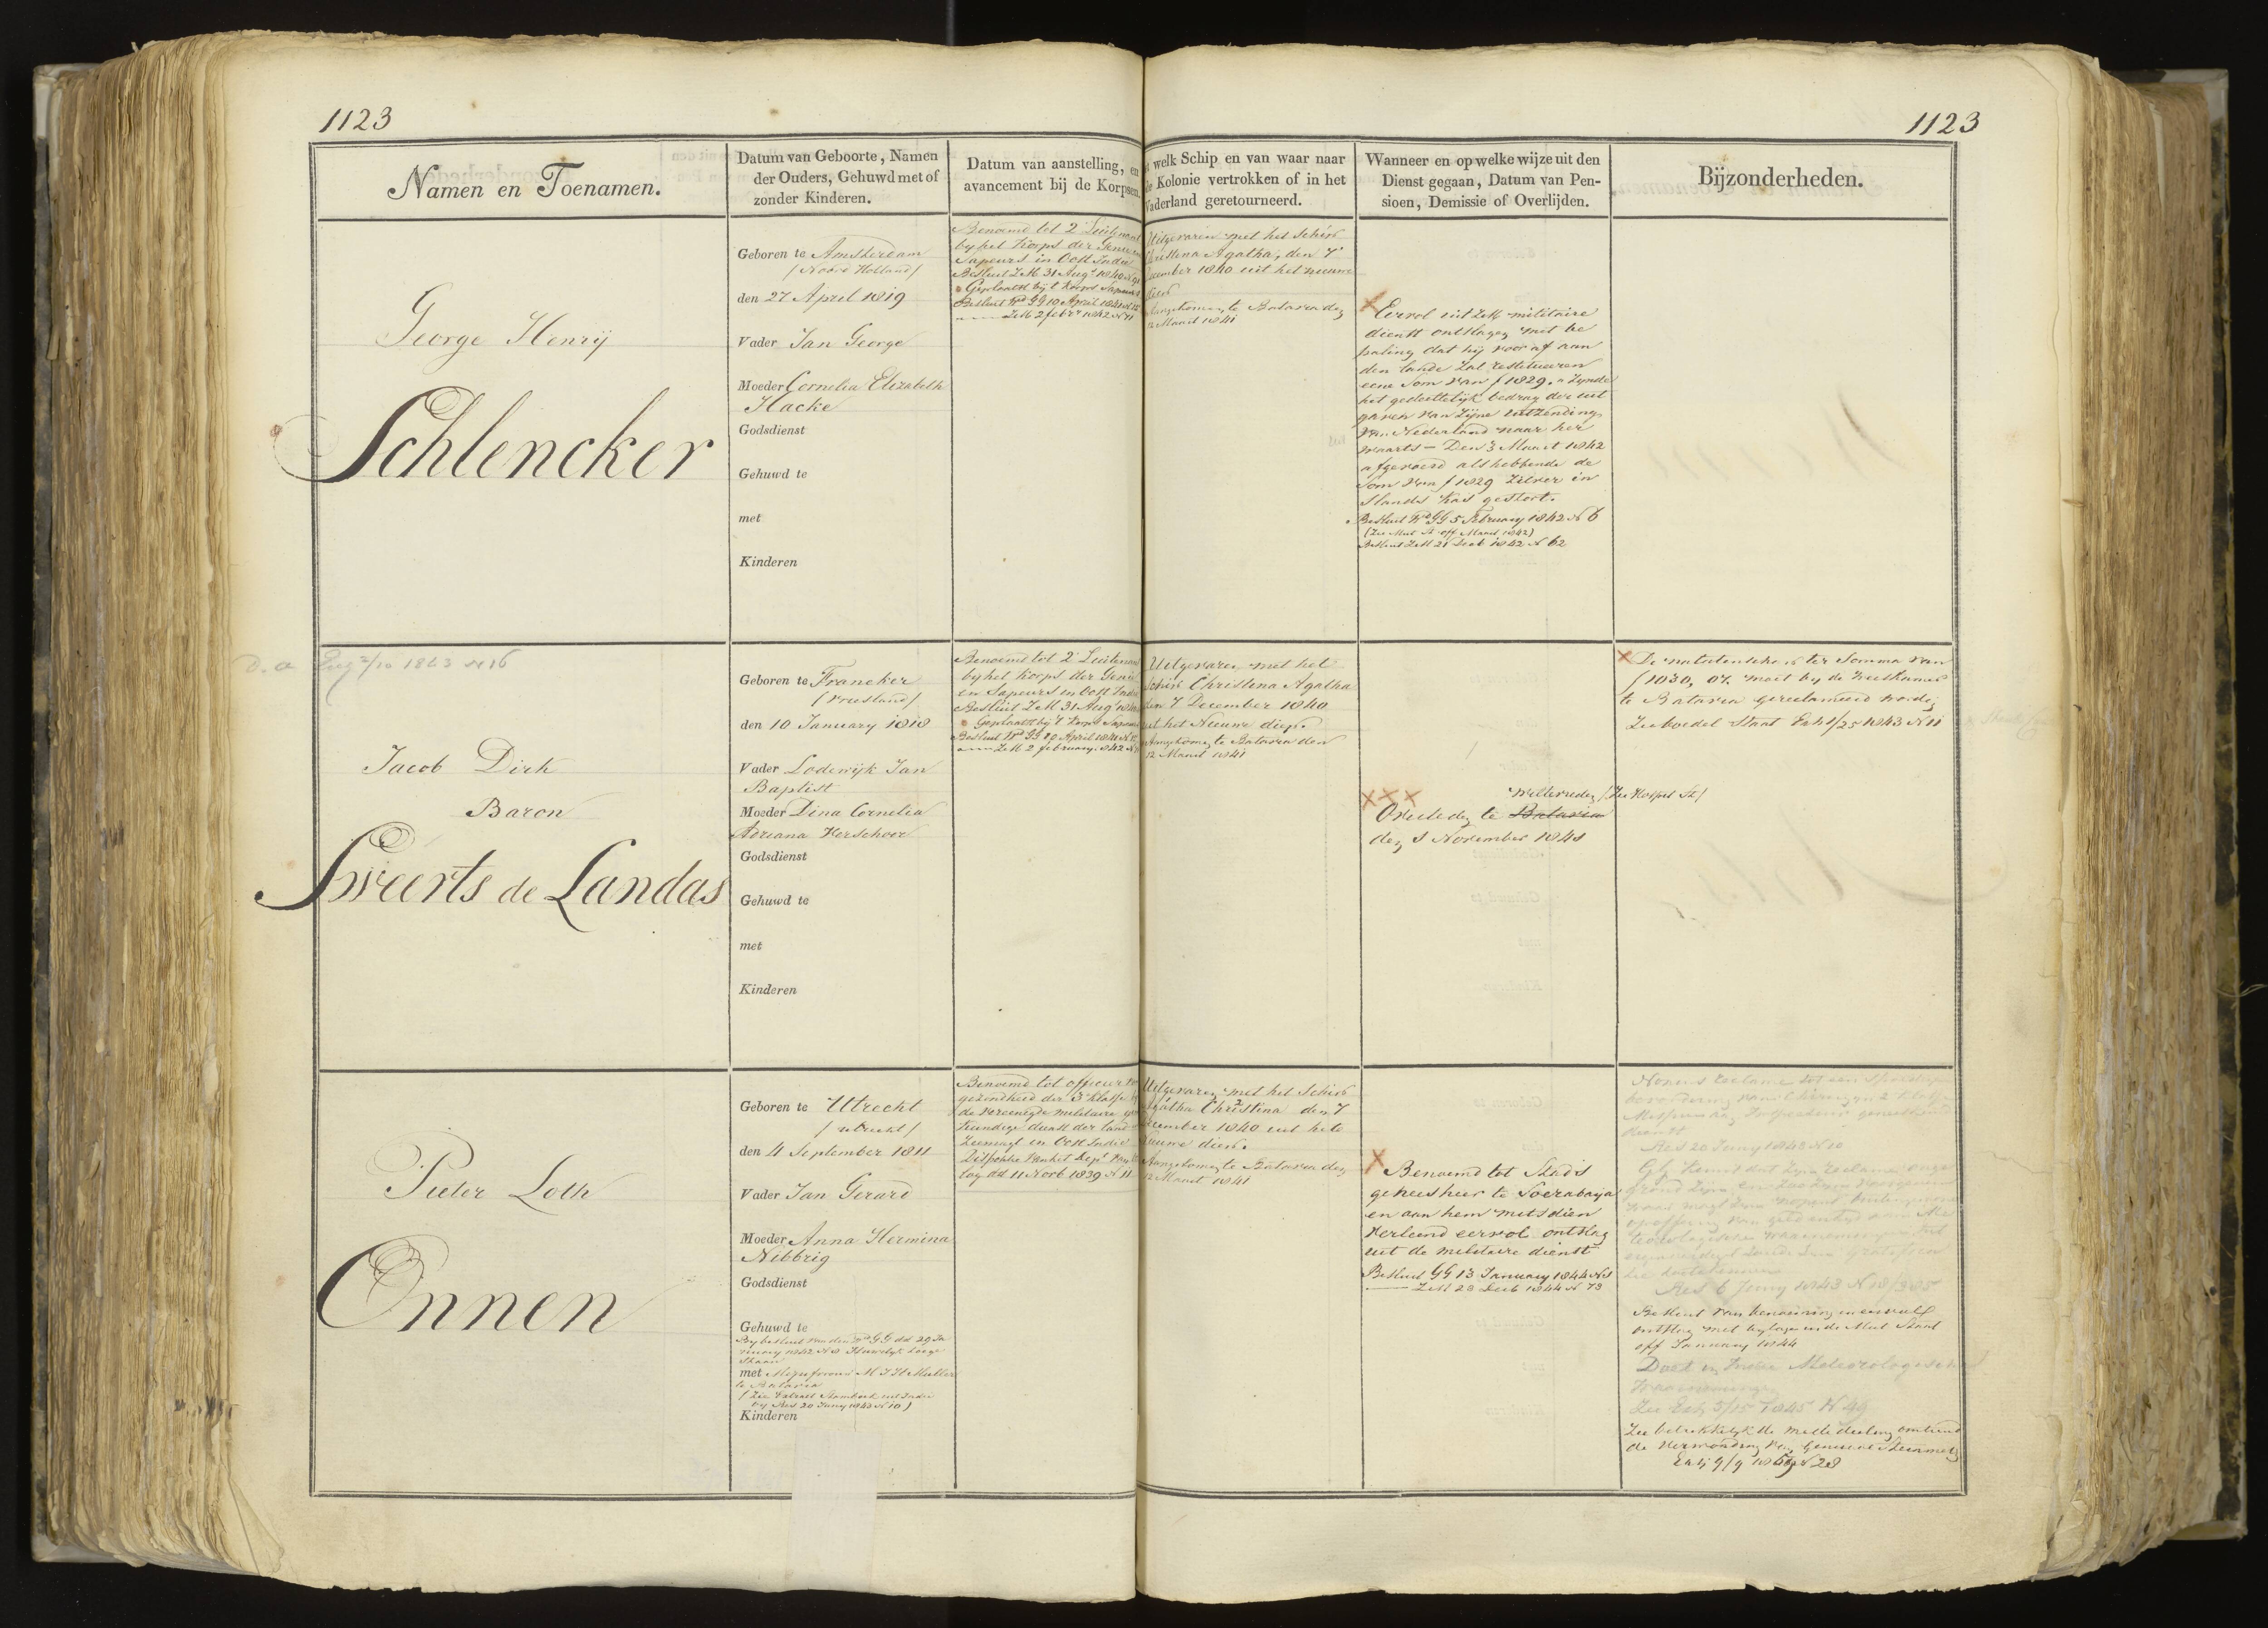 1123
1123
Namen en Toenamen.
Datum van Geboorte, Namen
der Ouders, Gehuwd met of
zonder Kinderen.
Datum van aanstelling, en
avancement bij de Korpsen
welk Schip en van waar naar
Kolonie vertrokken of in het
Vaderland geretourneerd.
Wanneer en op welke wijze uit den
Dienst gegaan, Datum van Pen-
sioen, Demissie of Overlijden.
Bijzonderheden.
George Henrij
Schlencker
Geboren te Amsterdam
(Noord Holland)
den 27 April 1819
Vader Jan George
Moeder Cornelia Elizabeth
Hacke
Godsdienst
Gehuwd te
met
Kinderen
Benoemd tot 2e Luitenant
by het Korps der Genie en
Sapeurs in Oost Indie
Besluit ZM 31 Augt 1840 N 98
Geplaatst bij 't Korps Sapeurs
Besluit Wd GG 10 April 1841
ZM 2 febr 1842 N 71
Uitgevaren met het Schip
Christina Agatha, den 7e
December 1840 uit het nieuwe
diep
Aangekomen te Batavia den
12 Maart 1841
Eervol uit ZM militaire
dienst ontslagen met be
paling dat hij vooraf aan
den lande zal restitueeren
eene Som van f 1829. „ Zynde
het gedeeltelijk bedrag der uit
gaven van zijne uitzending
van Nederland naar her
waarts – Den 3 Maart 1842
afgevoerd als hebbende de
Som van f 1829 Zilver in
slands kas gestort.
Besluit Wd GG 5 February 1842 N 6
(Zie Mut St off Maart 1842)
Besluit ZM 21 Decb 1842 N 62
D. a Exh 2/10 1843 N 16
Jacob Dirk
Baron
Sweerts de Landas
Geboren te Franeker
(Vriesland)
den 10 January 1818
Vader Lodewijk Jan
Baptist
Moeder Dina Cornelia
Adriana Verschoor
Godsdienst
Gehuwd te
met
Kinderen
Benoemd tot 2e Luitenant
by het Korps der Genie
en Sapeurs in Oost Indie
Besluit ZM 31 Augt 1840
Geplaatst bij 't Korps Sapeurs
Besluit Wd GG 10 April 1841 N
ZM 2 february 1842 N
Uitgevaren met het
Schip Christina Agatha
den 7 December 1840
uit het Nieuwe diep.
Aangekomen te Batavia den
12 Maart 1841
Weltevreden (Zie Hospit St)
Overleden te Batavia
den 1 November 1841
De nalatenschap ter Somma van
f 1030, 07. moet by de Weeskamer
te Batavia gereclameerd worden
Zie boedel Staat Exh 1/25 1843 N 11
Pieter Loth
Onnen
Geboren te Utrecht
(Utrecht)
den 4 September 1811
Vader Jan Gerard
Moeder Anna Hermina
Nibbrig
Godsdienst
Gehuwd te
By besluit van den Wd GG dd 29 Ja
nuary 1842 N 8 Huwelyk toege
staan
met Mejufvrouw M J H Muller
te Batavia
(Zie Extract Stamboek uit Indie
by Res 20 Juny 1843 N 10)
Kinderen
Benoemd tot officier van
gezondheid der 3e klasse by
de vereenigde militaire genees
kundige dienst der land en
Zeemagt in Oost Indie
Dispositie van het Dept van
log dd 11 Novb 1839 N 11
Uitgevaren met het Schip
Agatha Christina den 7
December 1840 uit het
Nieuwe diep.
Aangekomen te Batavia den
12 Maart 1841
Benoemd tot Stads
geneesheer te Soerabaija
en aan hem mitsdien
verleend eervol ontslag
uit de militaire dienst
Besluit GG 13 January 1844 N 1
ZM 28 Decb 1844 N 73
Res 20 Juny 1843 N 10
Res 6 Juny 1843 N 18/385
Besluit van benoeming en eervol
ontslag met bylagen in de Mut Staat
off January 1844
Meteorologische
Waarnemingen
Zie Exh 5/15 1845 N 49
Zie betrekkelyk de mededeeling omtrent
de verwonding van Generaal Steinmetz
Exh 9/9 1859 N 28